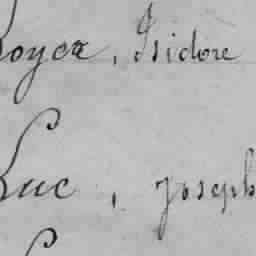 oyer, Isidore
Luc, Joseph